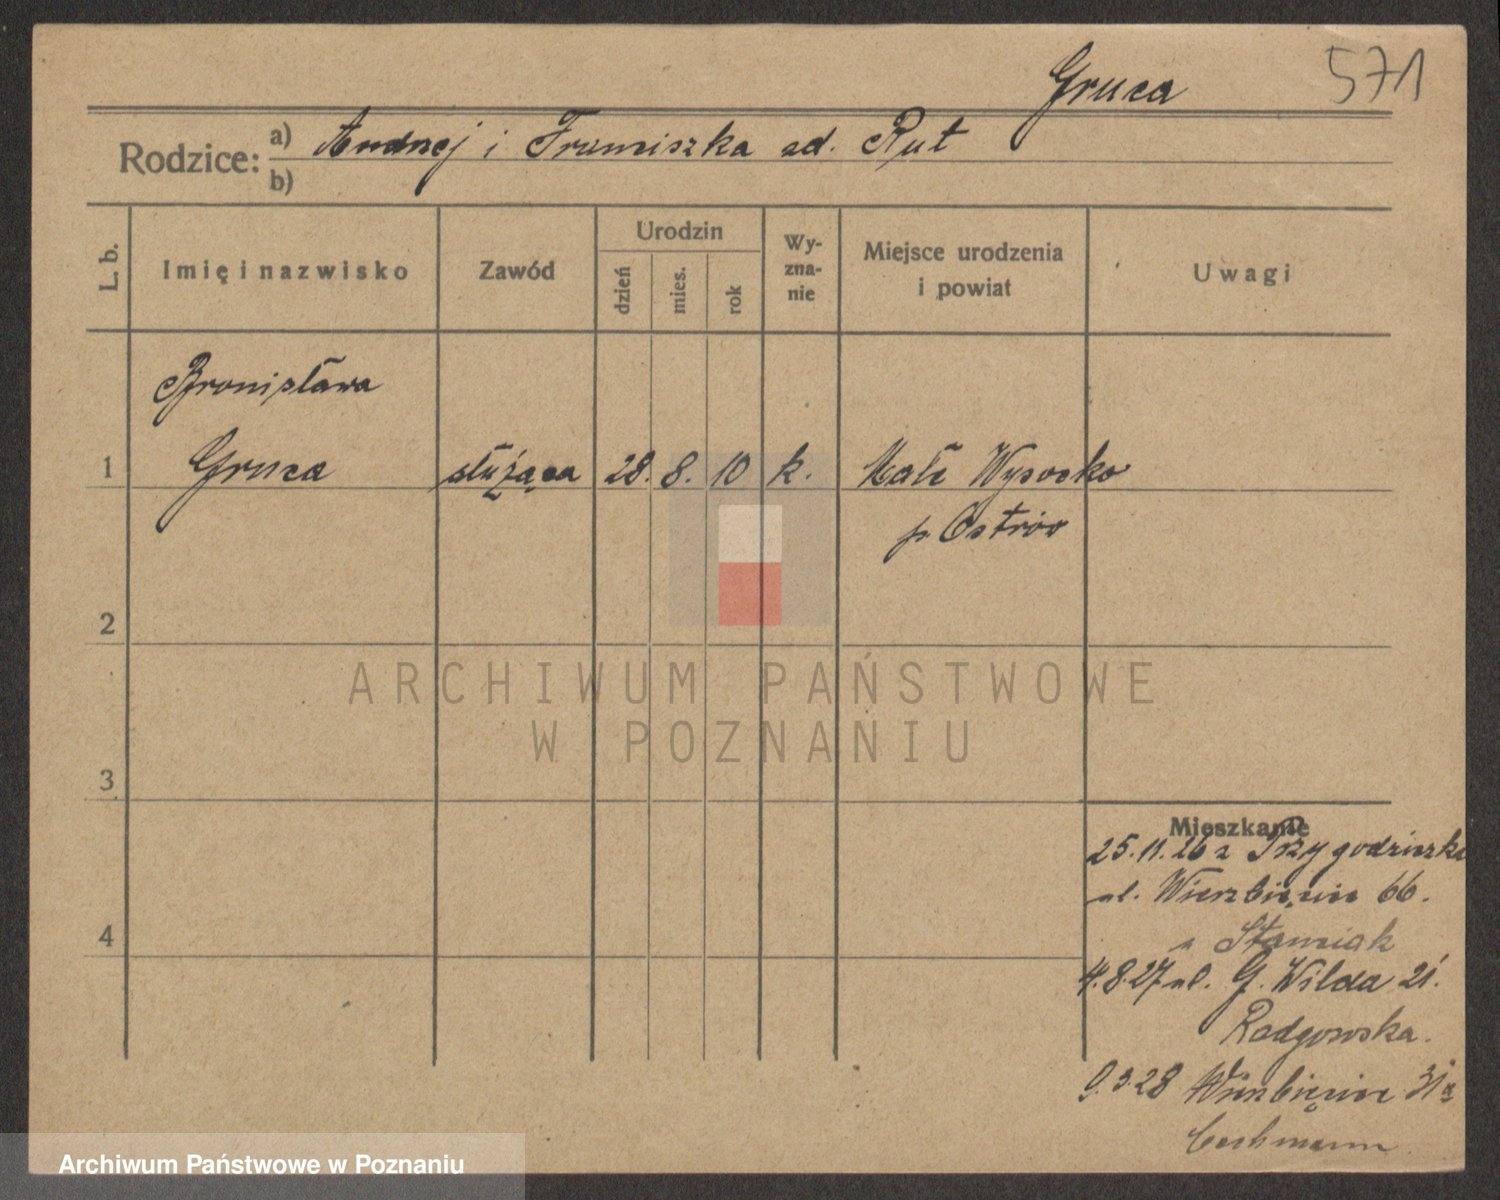 Gruca 571
Rodzice: a) Andrzej i Franciszka ad. Rut
b)
L. b. Imię i nazwisko Zawód Urodzin dzień mies. rok Wy-zna-nie Miejsce urodzenia i powiat Uwagi
Bronisława
1 Gruca służąca 28. 8. 10 k. Małe Wysocko
p. Ostrów
2
ARCHIWUM PAŃSTWOWE
W POZNANIU
3
Mieszkanie
25.11.26 z Przygodziczki
ul. Wierzbięcice 66.
4 Stawniak
4.8.27 ul. G. Wilda 21.
Radgowska.
9.3.28 Wierzbięcice 31a
Archiwum Państwowe w Poznaniu